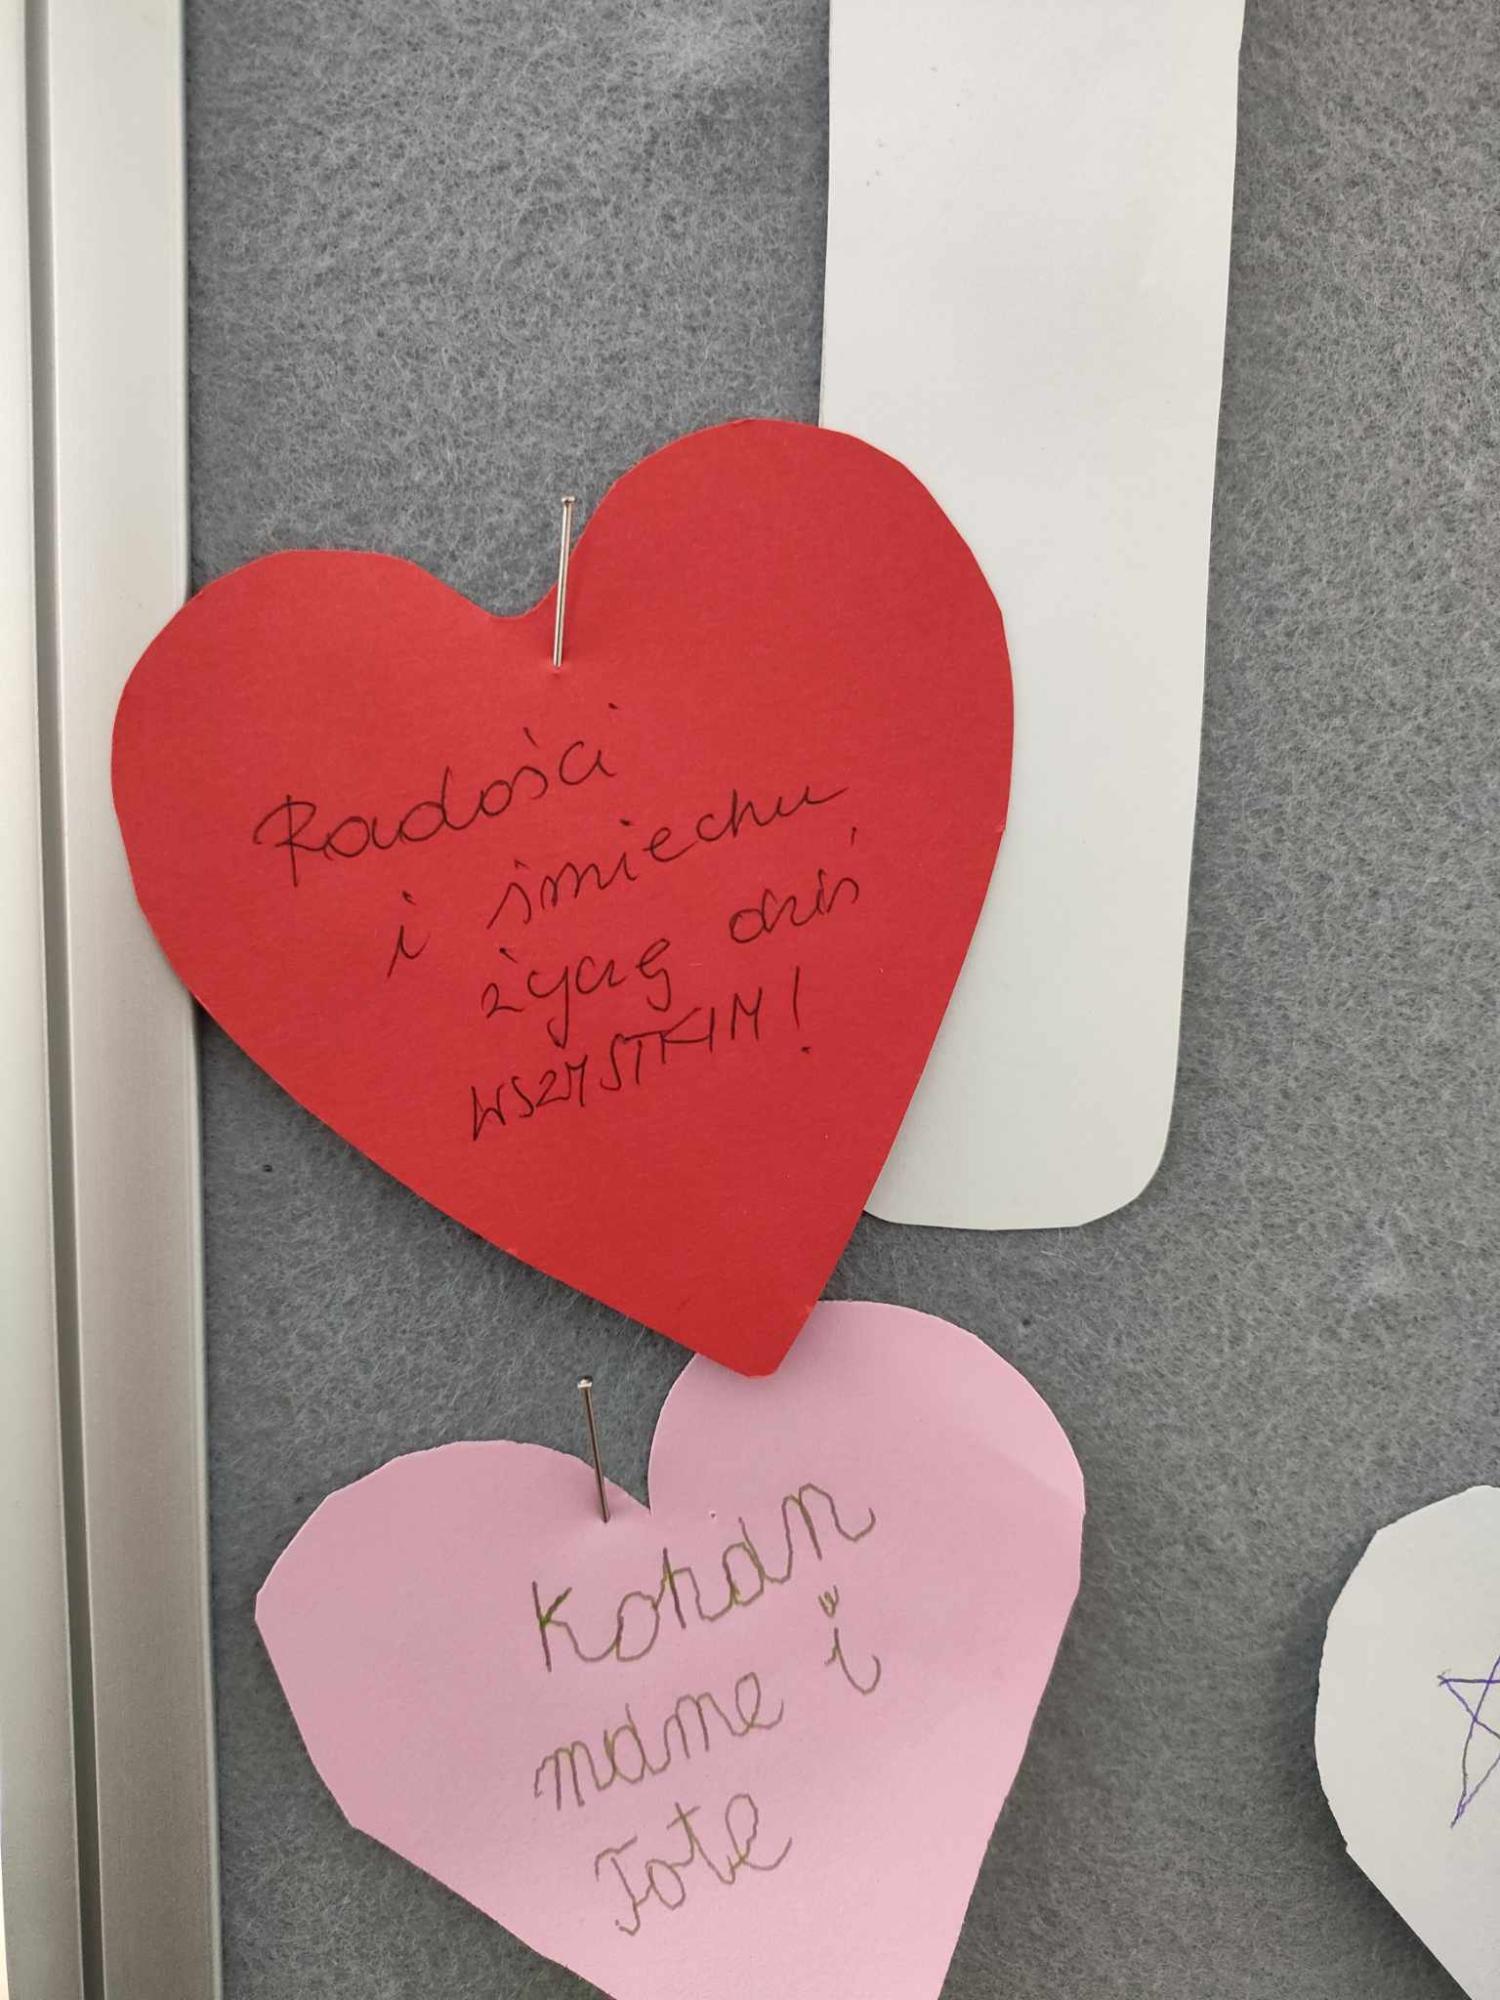 Radości
i śmiechu
życzę dziś
WSZYSTKIM!
Kohan
mame i
Tote